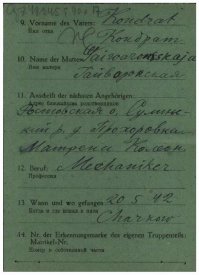 9. Vorname des Vaters: Kondrat
Имя отца
Кондрат
10. Name der Mutter:
Имя матери
Гайворонская
11. Anschrift der nächsten Angehörigen:
Адрес ближайших родственников
Ростовская о. Сулин-
р. д. Прохоровка
Матрени
12. Beruf: Mechaniker
Профессия
13. Wann und wo gefangen: 20.5.42
Когда и где взят в плен
Charkow
14. Nr. der Erkennungsmarke des eigenen Truppenteils:
Matrikel-Nr.
Номер в собственной части